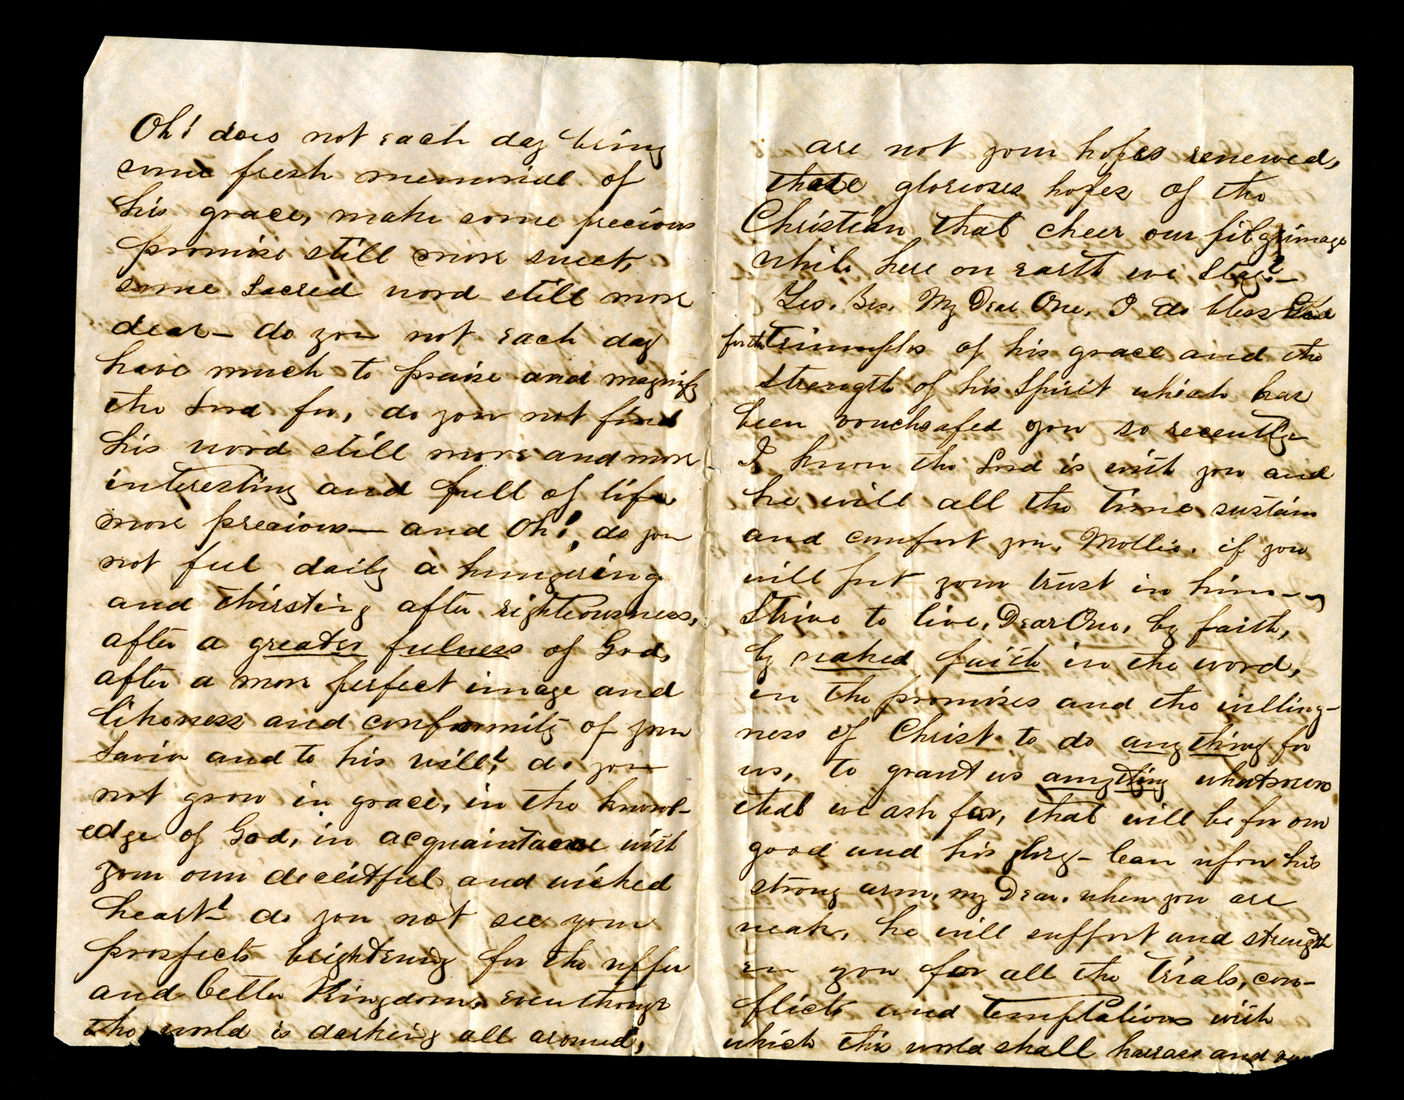 Oh! does not each day bring
some fresh memorial of
his grace, make some precious
promise still more sweet,
some Sacred word still more
dear— do you not each day
have much to praise and magnify
the Lord for, do you not find
his word still more and more
interesting and full of life
more precious— and Oh!, do you
not feel daily a hungering
and thirsting after righteousness,
after a greater fulness of God,
after a more perfect image and
likeness and conformity of your
Savior and to his will? do you
not grow in grace, in the knowl-
edge of God, in acquaintance with
your own deceitful and wicked
heart? do you not see your
prospects brightening for the upper
and better Kingdom, even though
the world is darking all around,
are not your hopes renewed,
those glorioses hopes of the
Christian that cheer our pilgrimage
while here on earth we stay?—
Yes. Yes. My Dear One. I do bless God
for the triumphs of his grace and the
strength of his Spirit which has
been vouchsafed you so recently
I know the Lord is with you and
he will all the time sustain
and comfort you, Mollie, if you
will put your trust in him—
Strive to live, Dear One, by faith,
by naked faith in the word,
in the promises and the willing-
ness of Christ to do anything for
us, to grant us anything whatsoever
that we ask for, that will be for our
good and his glory— lean upon his
strong arm, my Dear, when you are
weak, he will support and strength
en you for all the trials, con-
flicts and temptations with
which this world shall harrass and